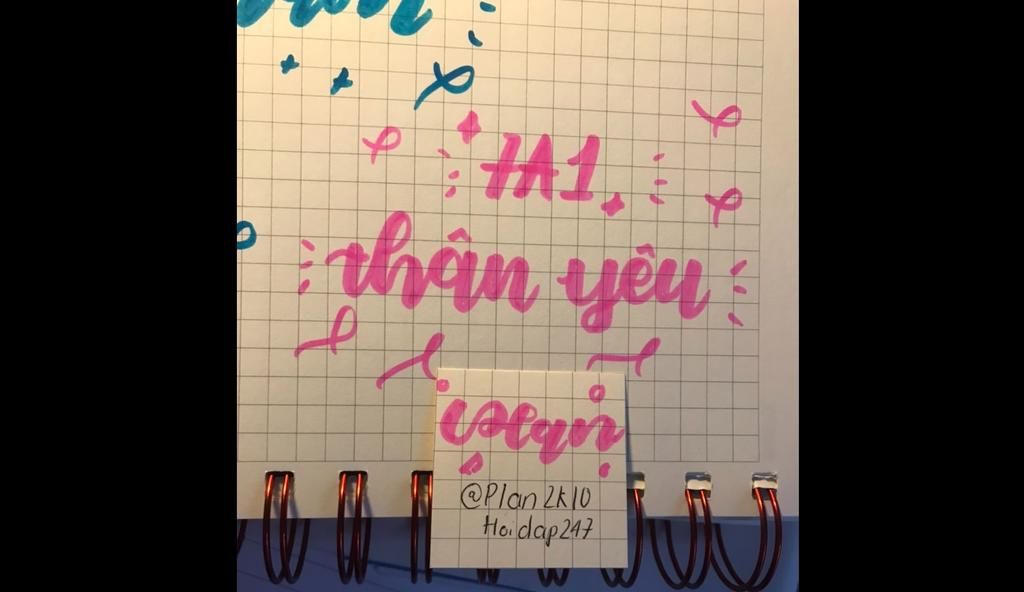 7A1
thân yêu
Plan
@Plan2k10
Hoidap247